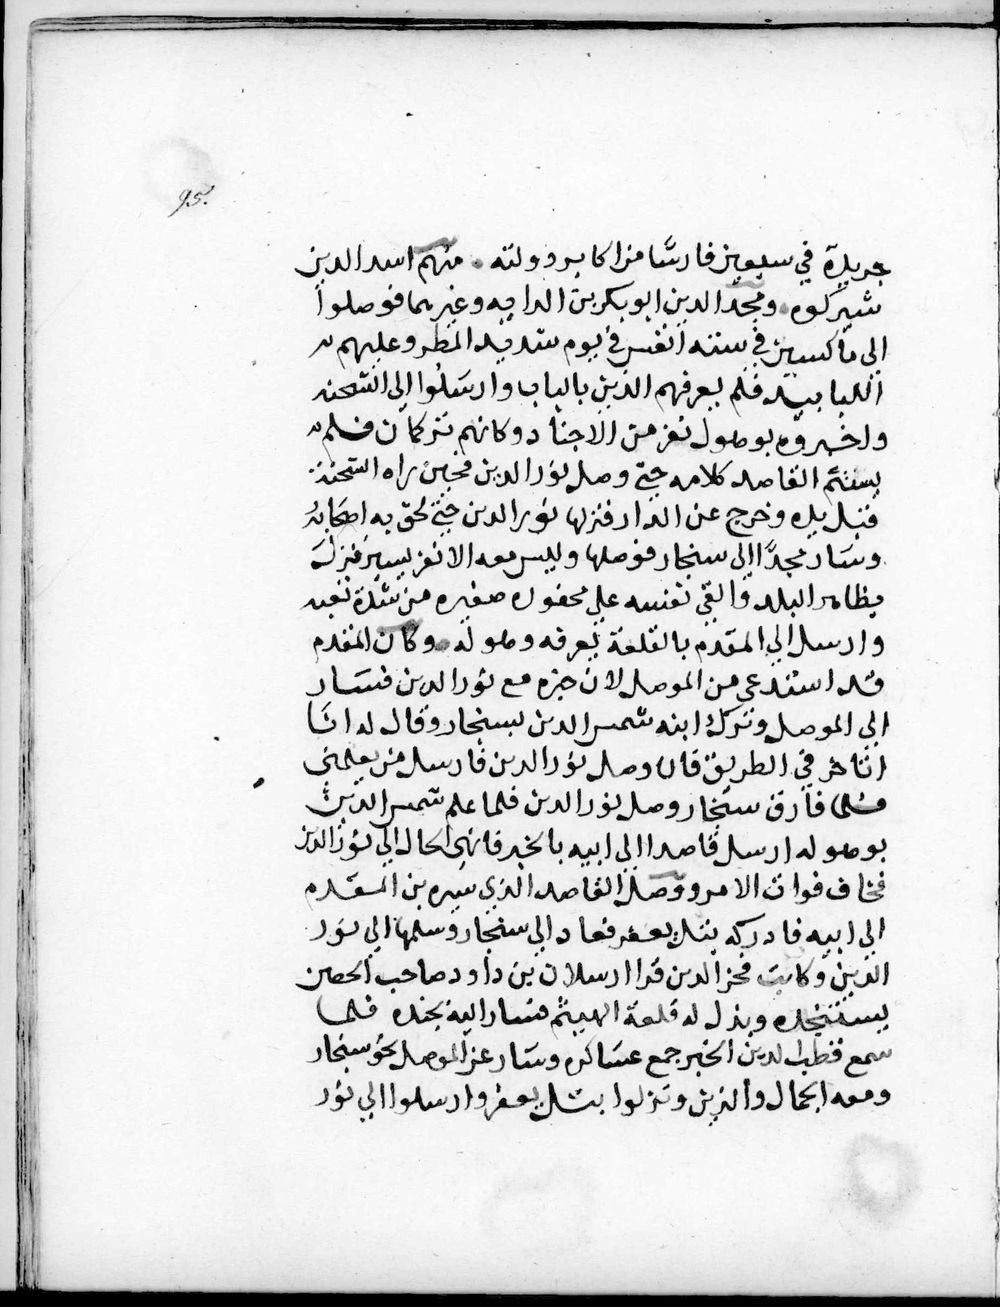 95.
جريدة في سبعين فارسا من اكابر دولته . منهم اسد الدين
شيركوه . ومجد الدين ابو بكر بن الدايه وغيرهما فوصلوا
الي ماكسين في ستة انفس في يوم شديد المطر وعليهم
اللبابيد فلم يعرفهم الذين بالباب وارسلوا الي الشحنه
واخبروه بوصول نفر من الاجناد وكانهم تركمان فلم
يستتم القاصد كلامه حتي وصل نور الدين فحين راه الشحنة
قبل يده وخرج عن الدار فنزلها نور الدين حتي لحق به اصحابه
وسار مجدا الي سنجار فوصلها وليس معه الا نفر يسير فنزل
بظاهر البلد والقي نفسه علي محفوره صغيره من شدة تعبه
وارسل الي المقدم بالقلعة يعرفه وصوله . وكان المقدم
قد استدعي من الموصل لان خبره مع نور الدين فسار
الي الموصل وترك ابنه شمس الدين بسنجار وقال له انا
اتاخر في الطريق فان وصل نور الدين فارسل من يعلمني
فلما فارق سنجار وصل نور الدين فلما علم شمس الدين
بوصوله ارسل قاصدا الي ابيه بالخبر فانهي الحال الي نور الدين
فخاف فوات الامر ووصل القاصد الذي سيره بن المقدم
الي ابيه فادركه بتل يعفر فعاد الي سنجار وسلمها الي نور
الدين وكاتب فخر الدين قرا ارسلان بن داود صاحب الحصن
يستنجده وبذل له قلعة الهيثم فسار اليه بجنده فلما
سمع قطب الدين الخبر جمع عساكره وسار عن الموصل نحو سنجار
ومعه الجمال والزين ونزلوا بتل يعفر وارسلوا الي نور